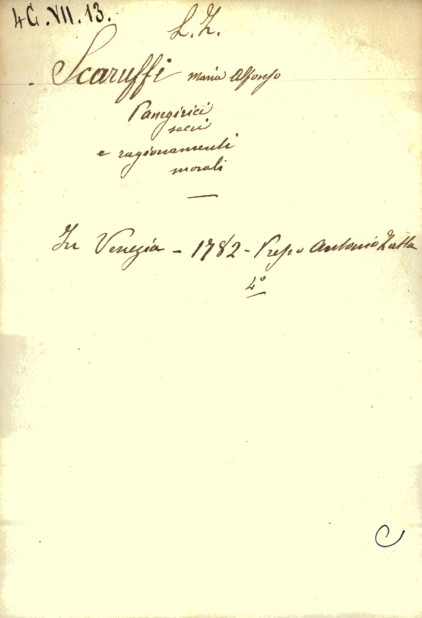 4G.VII.13.
L.Z.
Scaruffi Maria Alfonso
Panegirici
sacri
e ragionamenti
morali
In Venezia - 1782 - Presso Antonio Zatta
4º
C